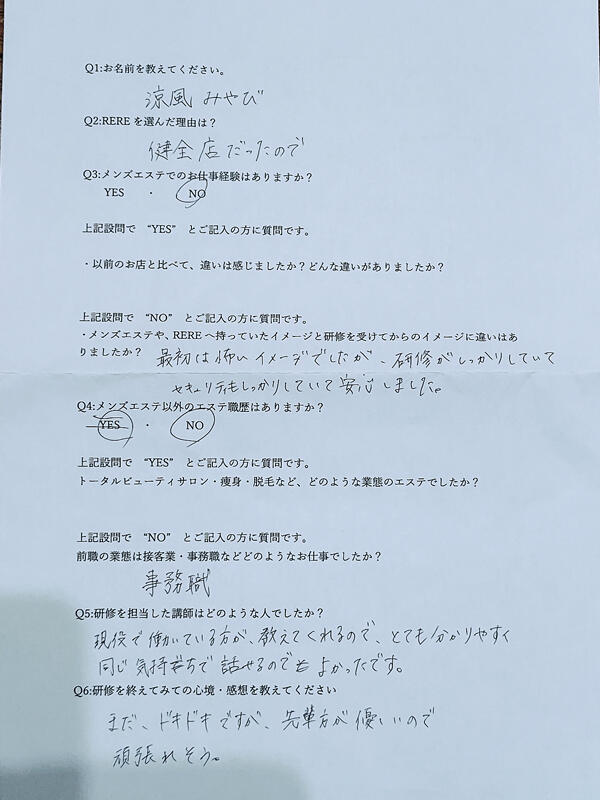 Q1:お名前を教えてください。
涼風 みやび
Q2:RERE を選んだ理由は？
健全店だったので
Q3:メンズエステでのお仕事経験はありますか？
YES ・ NO
上記設問で “YES” とご記入の方に質問です。
・以前のお店と比べて、違いは感じましたか？どんな違いがありましたか？
上記設問で “NO” とご記入の方に質問です。
・メンズエステや、RERE へ持っていたイメージと研修を受けてからのイメージに違いはあ
りましたか？ 最初は怖いイメージでしたが、研修がしっかりしていて
セキュリティもしっかりしていて安心しました。
Q4:メンズエステ以外のエステ職歴はありますか？
YES ・ NO
上記設問で “YES” とご記入の方に質問です。
トータルビューティサロン・痩身・脱毛など、どのような業態のエステでしたか？
上記設問で “NO” とご記入の方に質問です。
前職の業態は接客業・事務職などどのようなお仕事でしたか？
事務職
Q5:研修を担当した講師はどのような人でしたか？
現役で働いている方が、教えてくれるので、とても分かりやすく
同じ気持ちで話せるのでよかったです。
Q6:研修を終えてみての心境・感想を教えてください
まだ、ドキドキですが、先輩方が優しいので
頑張れそう。